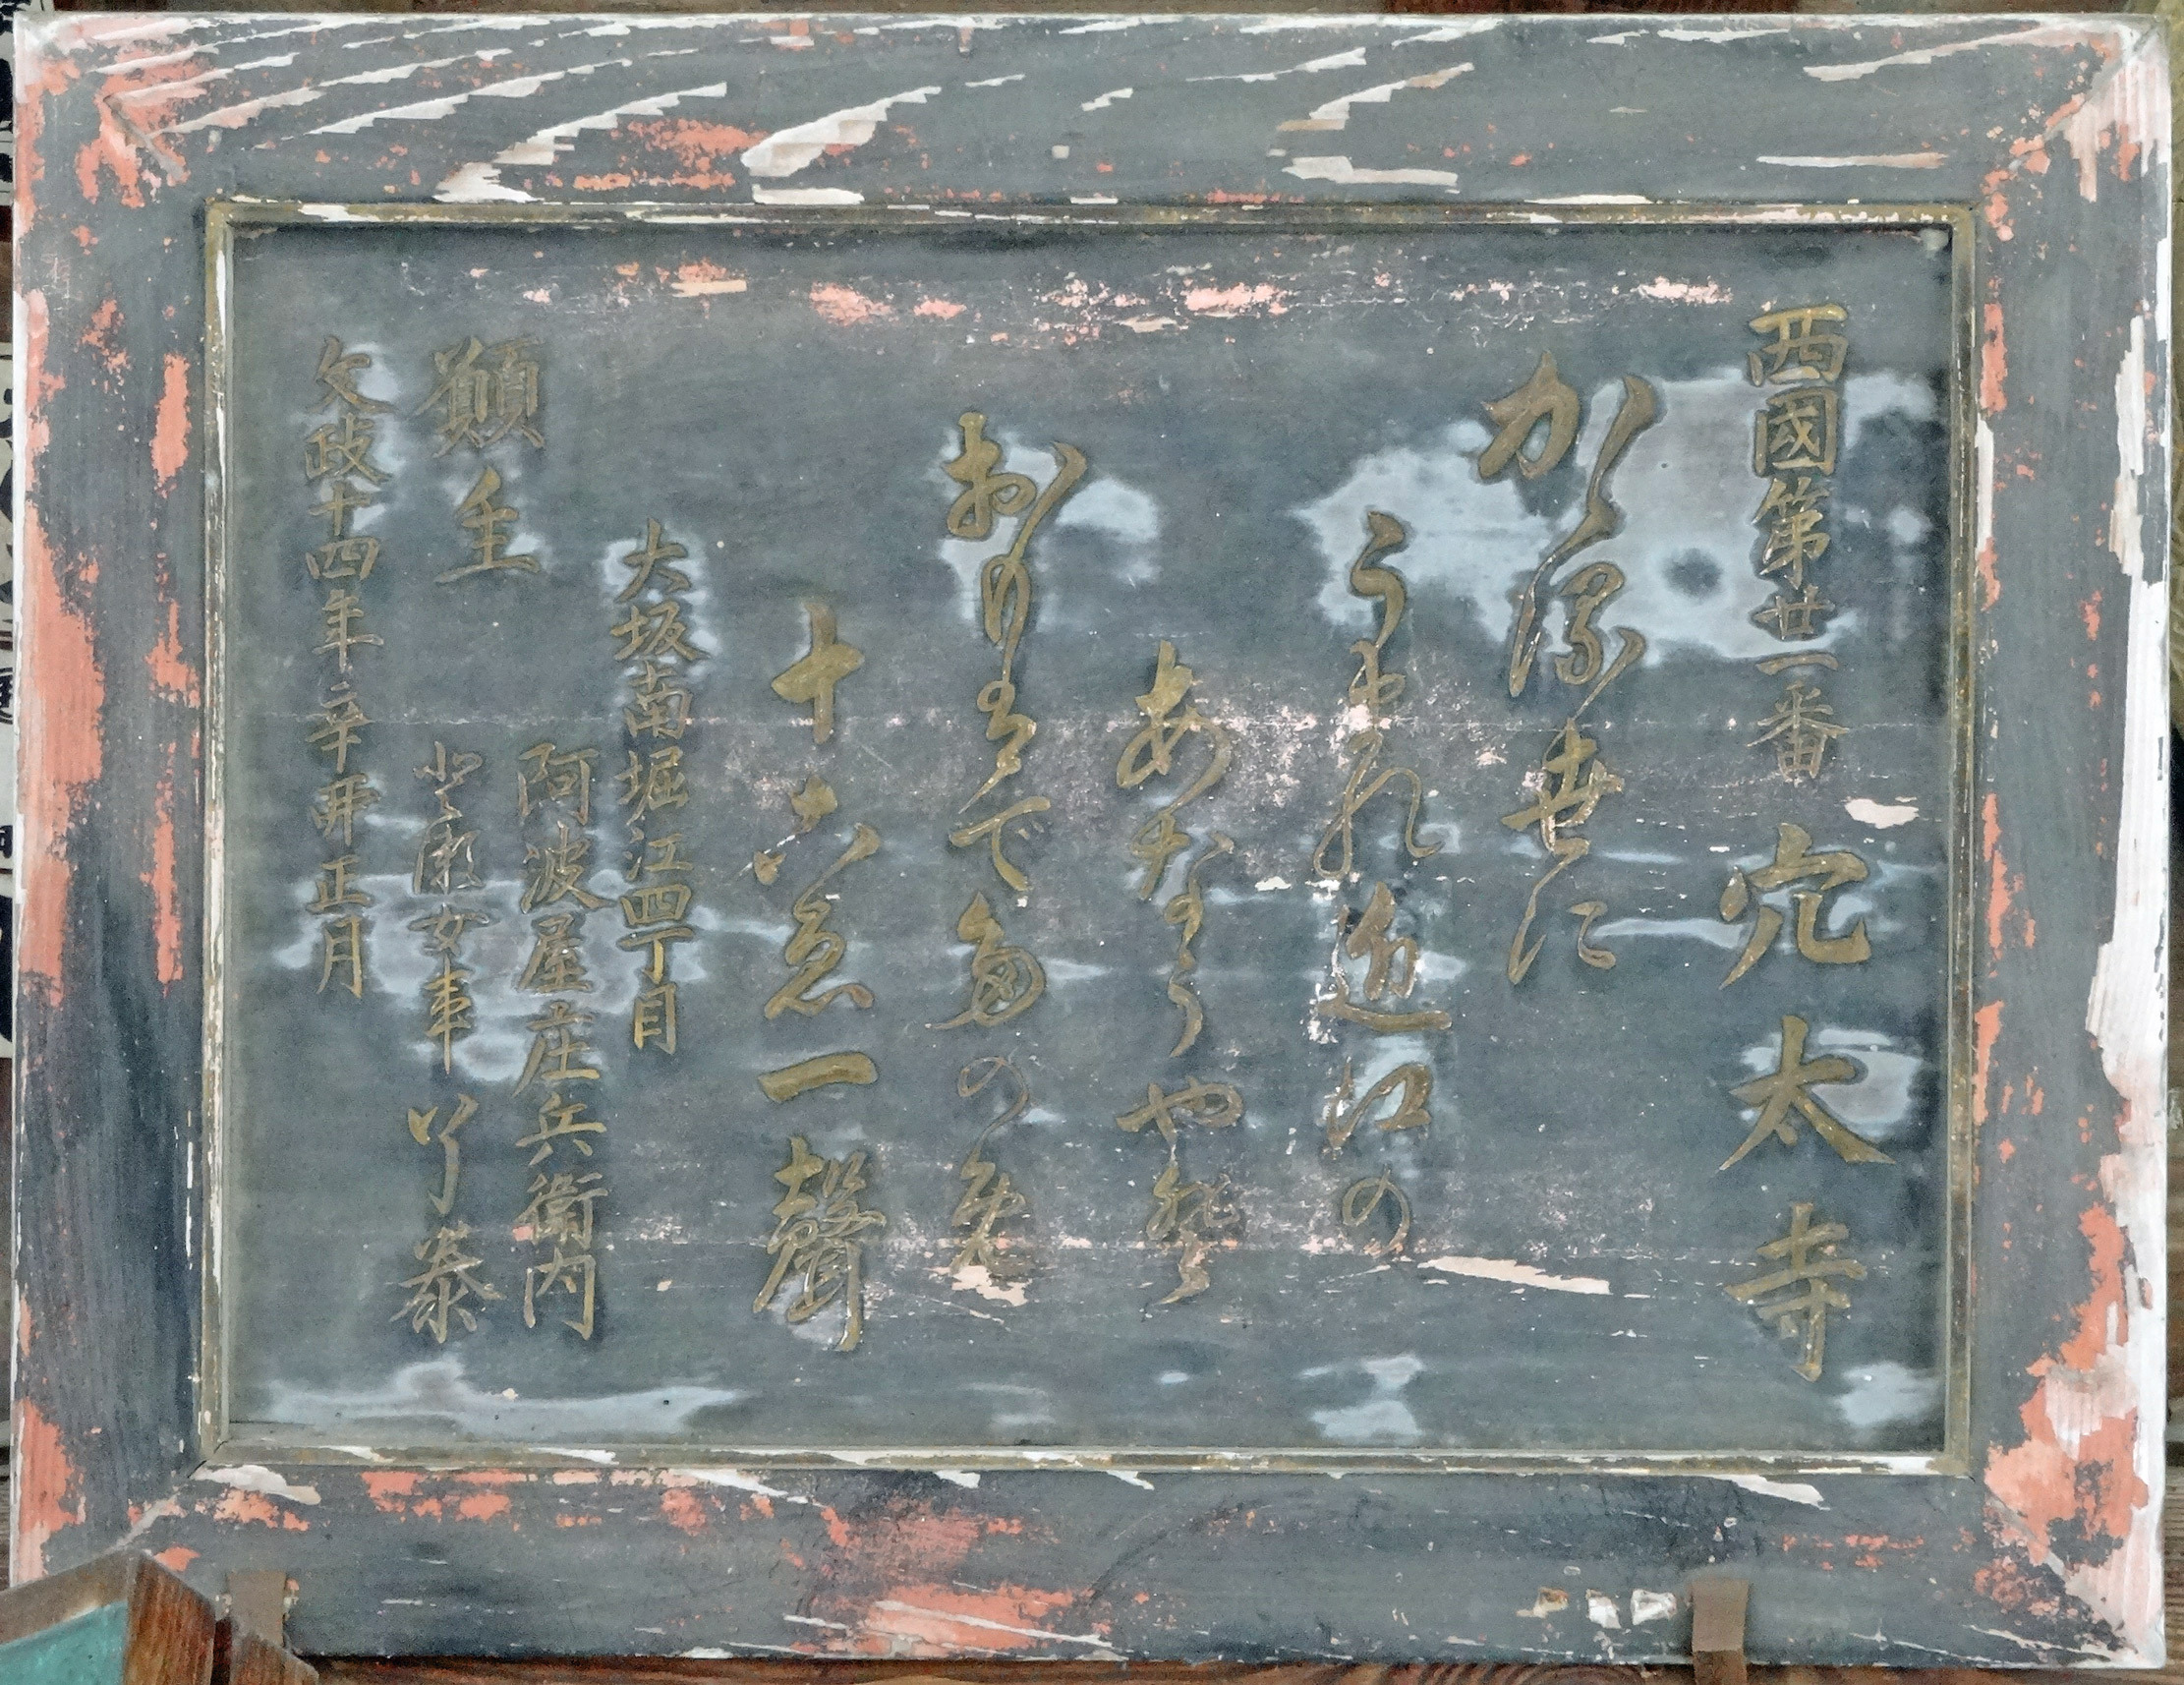 西國第廿一番 穴太寺
かゝる世に
うまれ逢身の
あなうや登
おもはで多の免
十こゑ一聲
大坂南堀江四丁目
願主
阿波屋庄兵衛内
女事
文政十四年辛卯正月